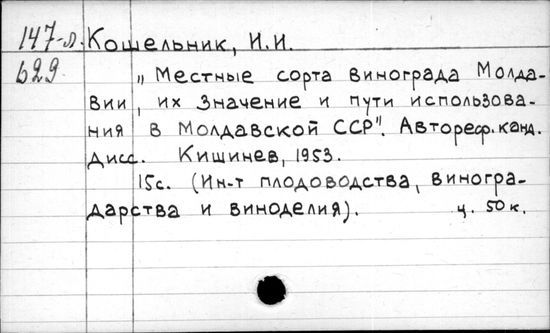 147-л. Кошельник, И.И.
629. „Местные сорта винограда Молда-
вии, их значение и пути использова-
ния в Молдавской ССР". Автореф. канд.
дисс. Кишинев, 1953.
15с. (Ин-т плодоводства, виногра-
дарства и виноделия). ц. 50к.